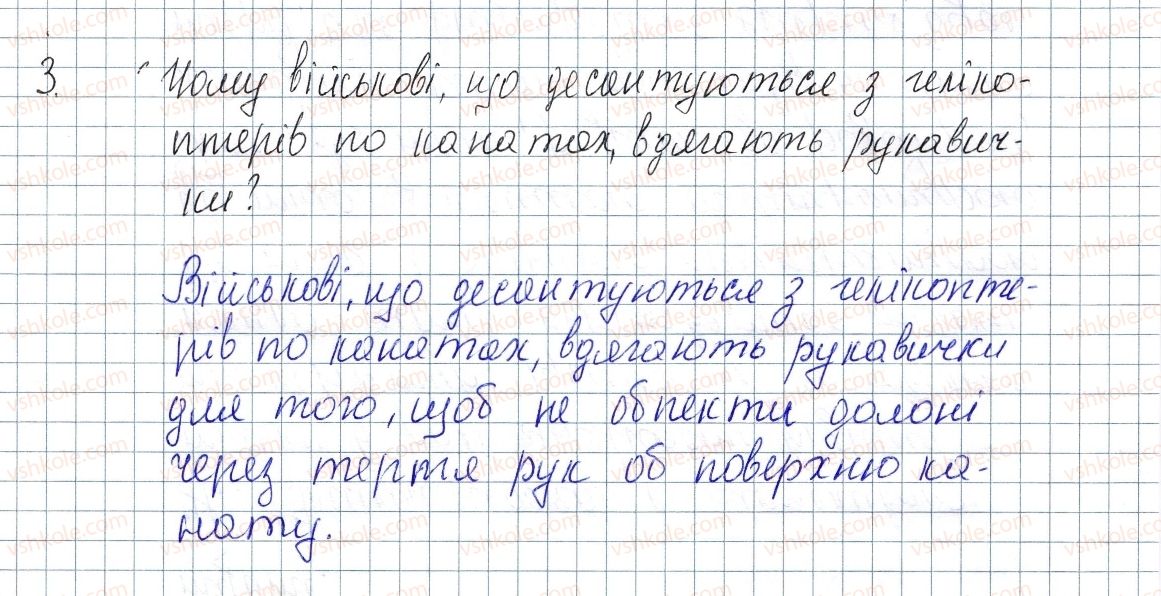 3. Чому військові, що десантуються з геліко-
птерів по канатах, вдягають рукавич-
ки?
Військові, що десантуються з гелікопте-
рів по канатах, вдягають рукавички
для того, щоб не обпекти долоні
через тертя рук об поверхню ка-
нату.